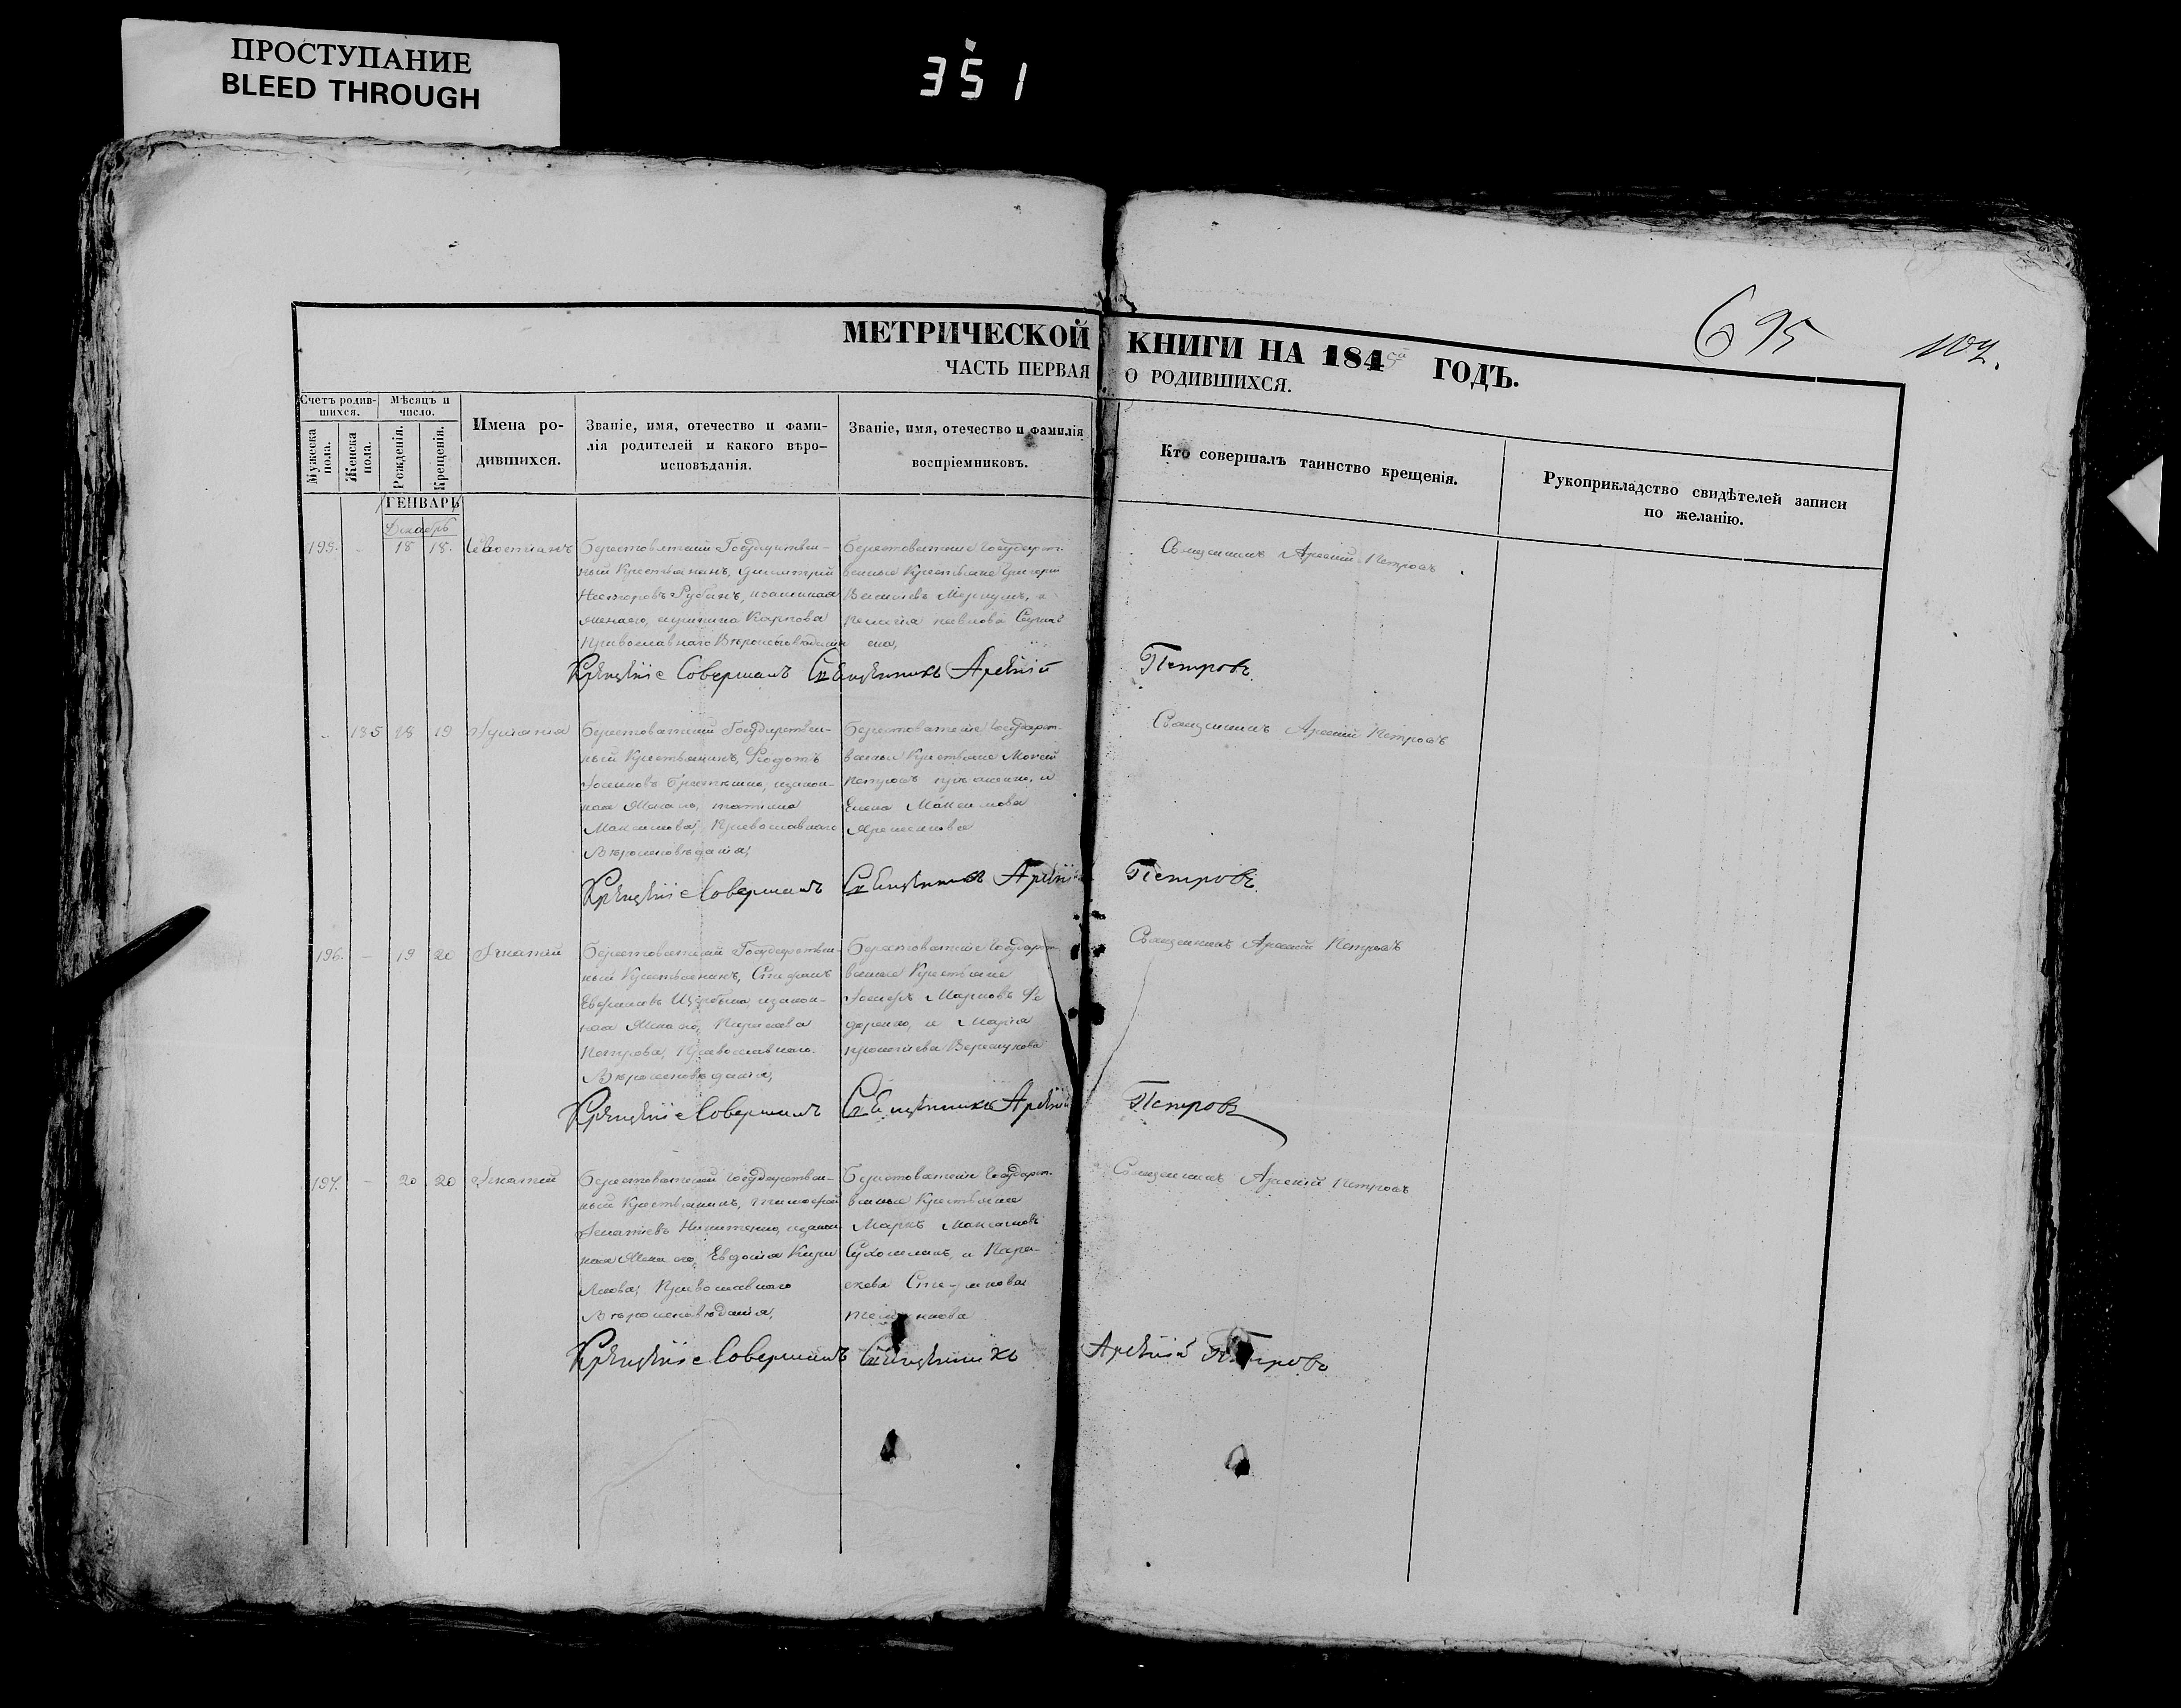 ПРОСТУПАНИЕ
BLEED THROUGH
351
695
МЕТРИЧЕСКОЙ КНИГИ НА 1845й ГОДЪ.
ЧАСТЬ ПЕРВАЯ О РОДИВШИХСЯ.
Счетъ родив-
шихся.
Мужеска
пола.
Женска
пола.
Мѣсяцъ и
число.
Рожденія.
Крещенія.
Имена ро-
дившихся.
Званіе, имя, отечество и фами-
лія родителей и какого вѣро-
исповѣданія.
Званіе, имя, отечество и фамилія
воспріемниковъ.
Кто совершалъ таинство крещенія.
Рукоприкладство свидѣтелей записи
по желанію.
ГЕНВАРЬ
Декабрь
195. 18 18.
Берестоватскій Государствен-
ный Крестьянинъ, Димитрій
Несторовъ Рубанъ, изаконная
жена его, Карпова
Православнаго Вѣроисповѣданія
Берестоватскіе Государст-
венные Крестьяне Григорій
Васильевъ
Павлова
Священникъ Арсеній Петровъ
Крещеніе Совершалъ Священникъ Арсеній Петровъ
185 18 19 Іуліанія
Берестоватскій Государствен-
ный Крестьянинъ, Федотъ
Іосифовъ изакон-
ная жена его, Татіана
Максимова, Православнаго
Вѣроисповѣданія,
Берестоватскіе Государст-
венные Крестьяне Мокей
Петровъ и
Елена Максимова
Священникъ Арсеній Петровъ
Крещеніе Совершалъ Священникъ Арсеній Петровъ
196. 19 20 Игнатій
Берестоватскій Государствен-
ный Крестьянинъ, Стефанъ
изакон-
ная Жена его,
Петрова, Православнаго
Вѣроисповѣданія,
Берестоватскіе Государст-
венные Крестьяне
Іосифъ Марковъ Фе
доренко, и Марія
Священникъ Арсеній Петровъ
Крещеніе Совершалъ Священникъ Арсеній Петровъ
197. 20 20 Игнатій
Берестоватскій Государствен-
ный Крестьянинъ, Тимофей
Игнатіевъ Никитенко, изакон
ная Жена его, Евдокія Кири
лова, Православнаго
Вѣроисповѣданія,
Берестоватскіе Государст-
венные Крестьяне
Марко Максимовъ
и Пара-
скева Стефанова
Священникъ Арсеній Петровъ
Крещеніе Совершалъ Священникъ Арсеній Петровъ